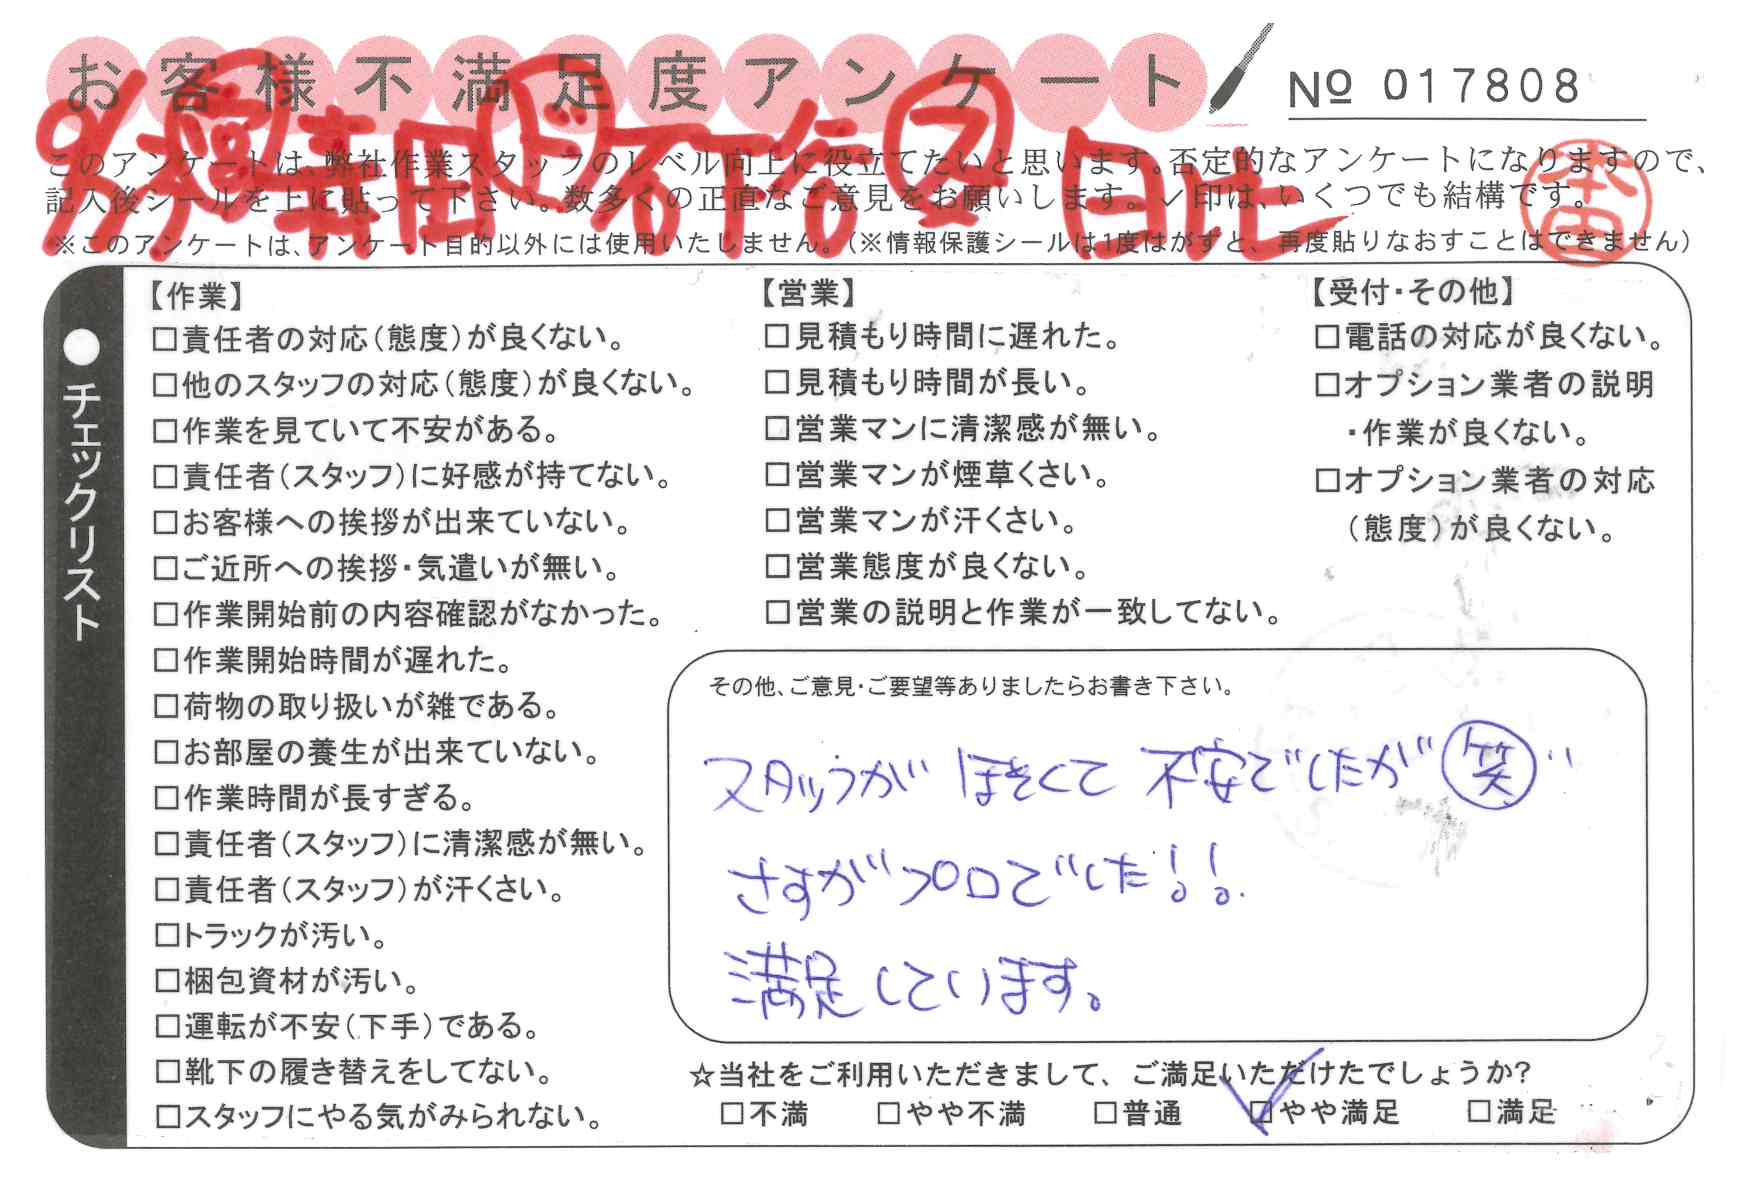 お客様不満足度アンケート
No 017808
このアンケートは、弊社作業スタッフのレベル向上に役立てたいと思います。否定的なアンケートになりますので、
記入後シールを上に貼って下さい。数多くの正直なご意見をお願いします。✓印は、いくつでも結構です。
※このアンケートは、アンケート目的以外には使用いたしません。(※情報保護シールは1度はがすと、再度貼りなおすことはできません)
●チェックリスト
【作業】
□責任者の対応(態度)が良くない。
□他のスタッフの対応(態度)が良くない。
□作業を見ていて不安がある。
□責任者(スタッフ)に好感が持てない。
□お客様への挨拶が出来ていない。
□ご近所への挨拶・気遣いが無い。
□作業開始前の内容確認がなかった。
□作業開始時間が遅れた。
□荷物の取り扱いが雑である。
□お部屋の養生が出来ていない。
□作業時間が長すぎる。
□責任者(スタッフ)に清潔感が無い。
□責任者(スタッフ)が汗くさい。
□トラックが汚い。
□梱包資材が汚い。
□運転が不安(下手)である。
□靴下の履き替えをしてない。
□スタッフにやる気がみられない。
【営業】
□見積もり時間に遅れた。
□見積もり時間が長い。
□営業マンに清潔感が無い。
□営業マンが煙草くさい。
□営業マンが汗くさい。
□営業態度が良くない。
□営業の説明と作業が一致してない。
【受付・その他】
□電話の対応が良くない。
□オプション業者の説明
・作業が良くない。
□オプション業者の対応
(態度)が良くない。
その他、ご意見・ご要望等ありましたらお書き下さい。
スタッフが ほそくて 不安でしたが 笑
さすがプロでした!!
満足しています。
☆当社をご利用いただきまして、ご満足いただけたでしょうか?
□不満 □やや不満 □普通 □やや満足 □満足